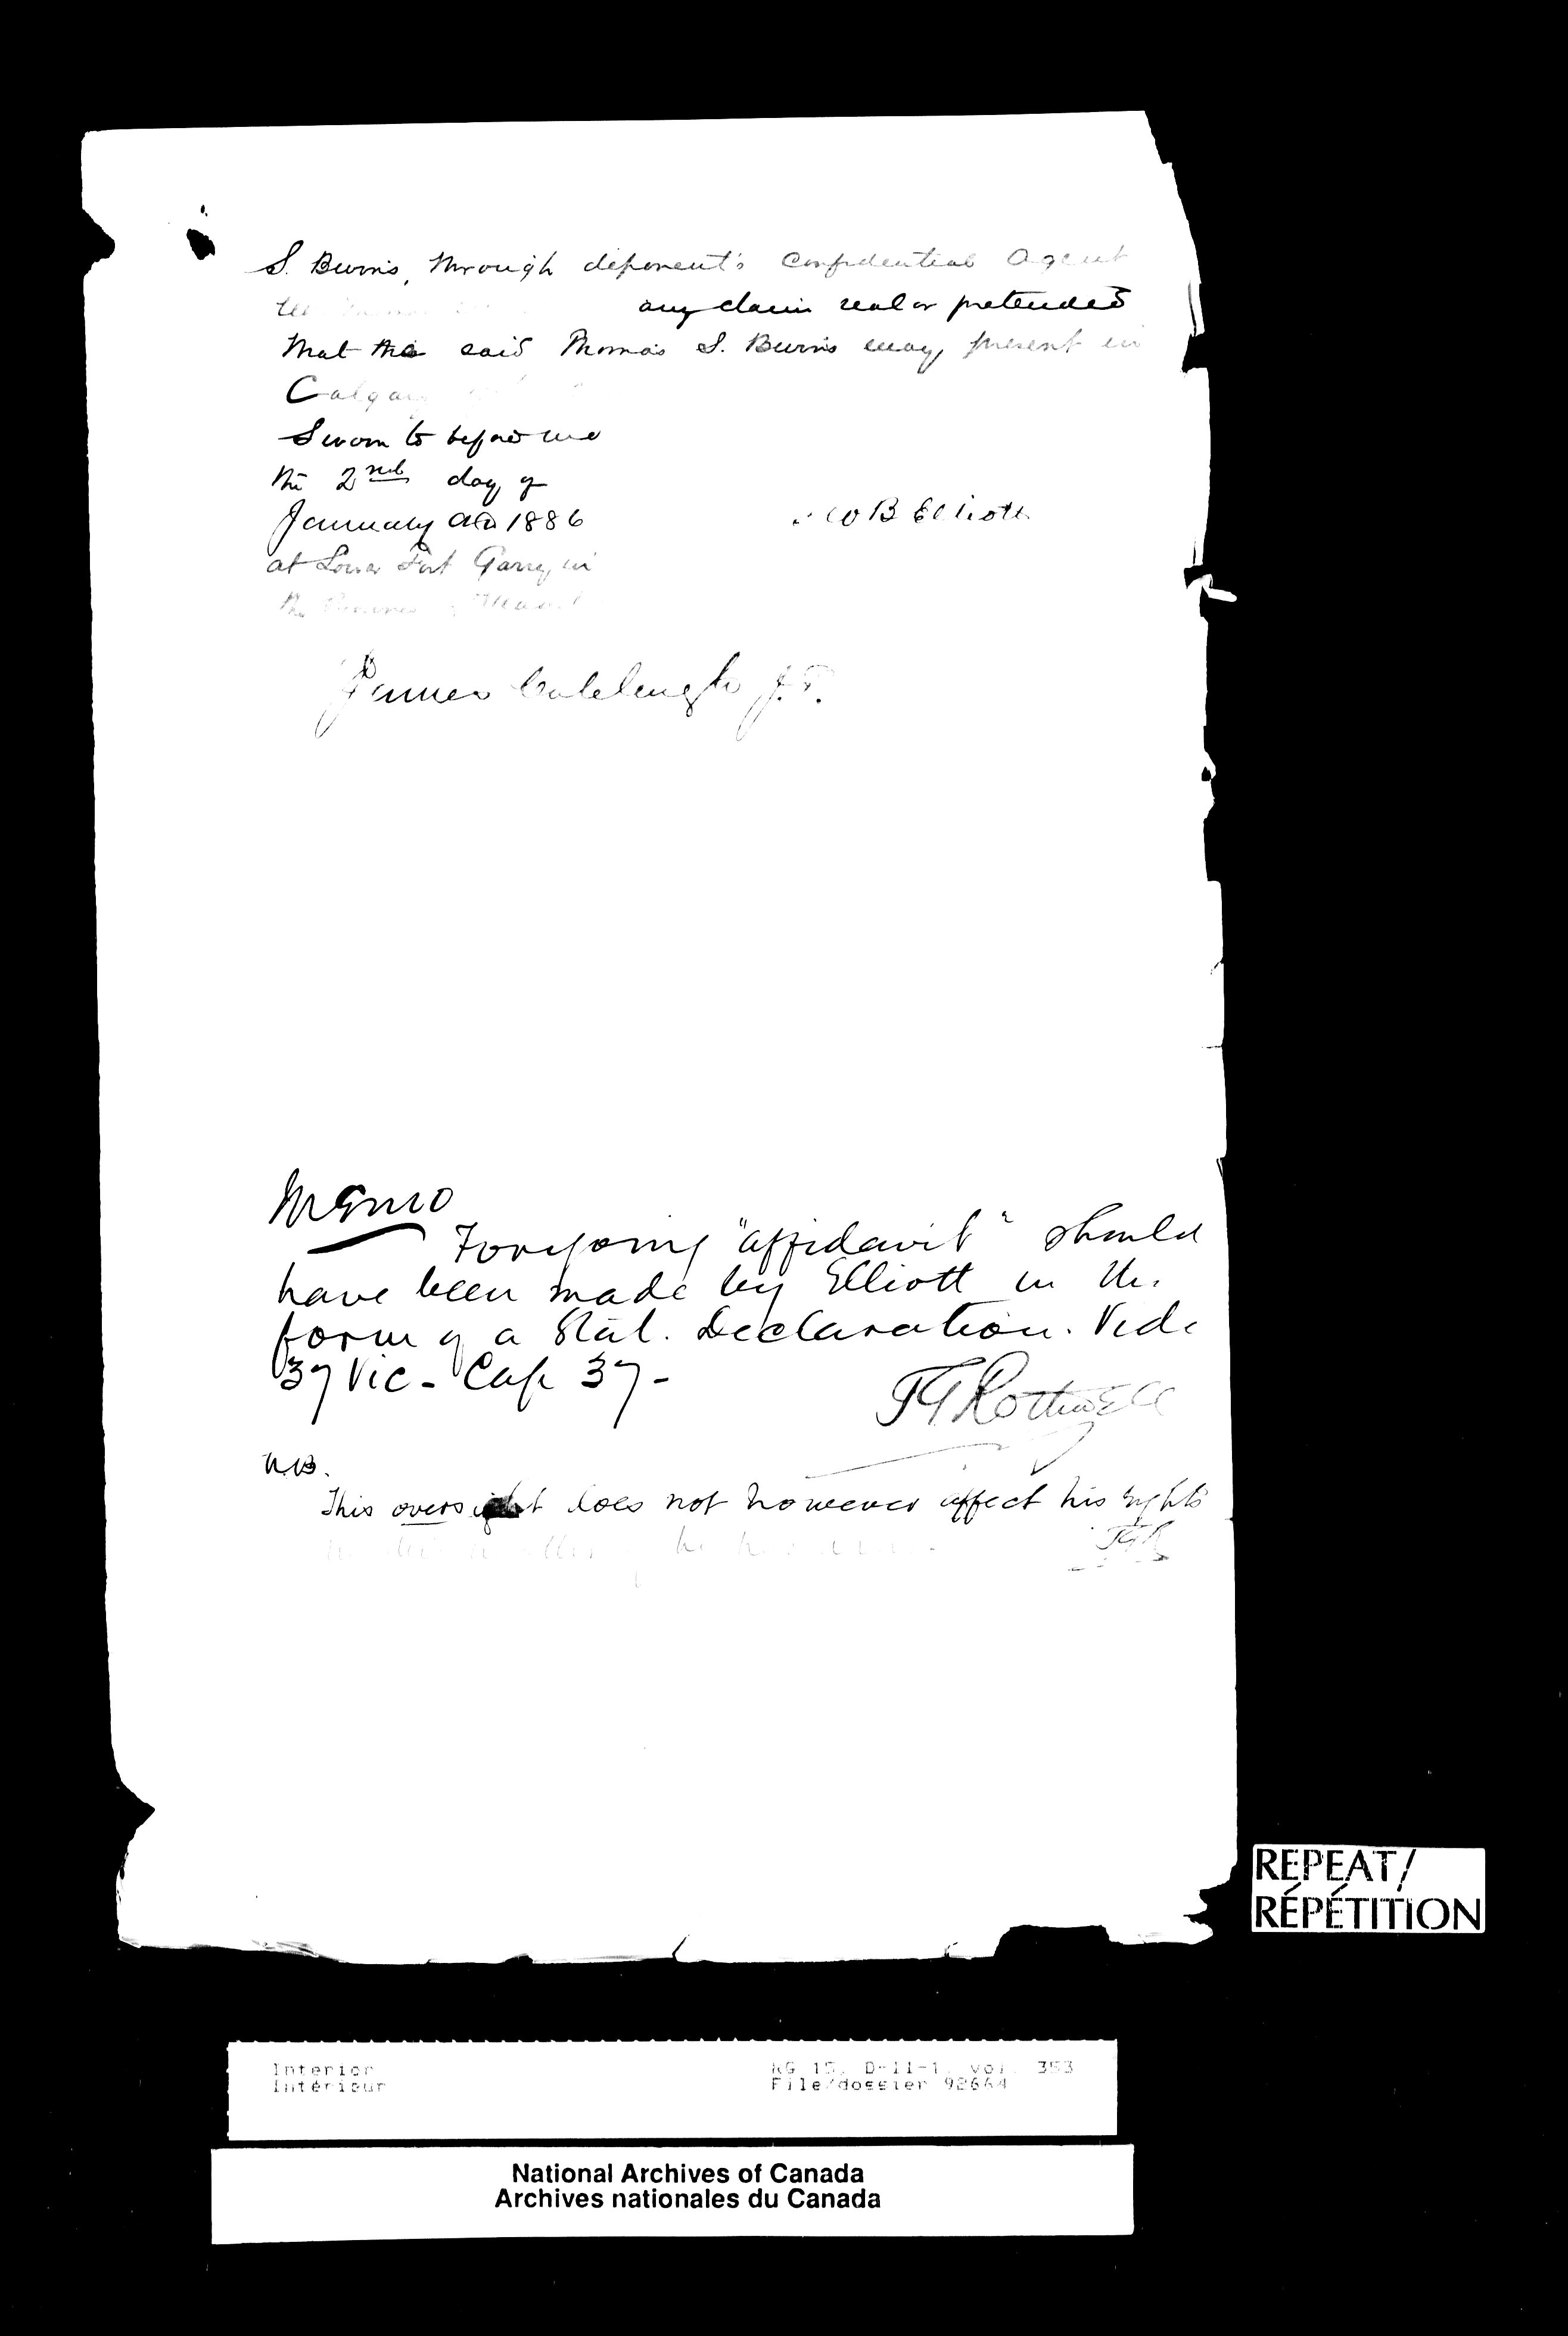 S. Burns, through deponent's Confidential Agent
any claim real or pretended
that the said Thomas S. Burns may present in
Calgary
Sworn to before me
the 2nd day of
January AD 1886
W B Elliott
at Lower Fort Garry in
the Province
James Colcleugh J.P.
Memo
Foregoing "affidavit" should
have been made by Elliott in the
form of a Stat. Declaration. Vide
37 Vic - Cap 37 -
T G Rothwell
N.B.
This oversight does not however affect his rights
TGR
REPEAT/
RÉPÉTITION
Interior RG 15, D-II-1, vol. 353
Intérieur File/dossier 92664
National Archives of Canada
Archives nationales du Canada